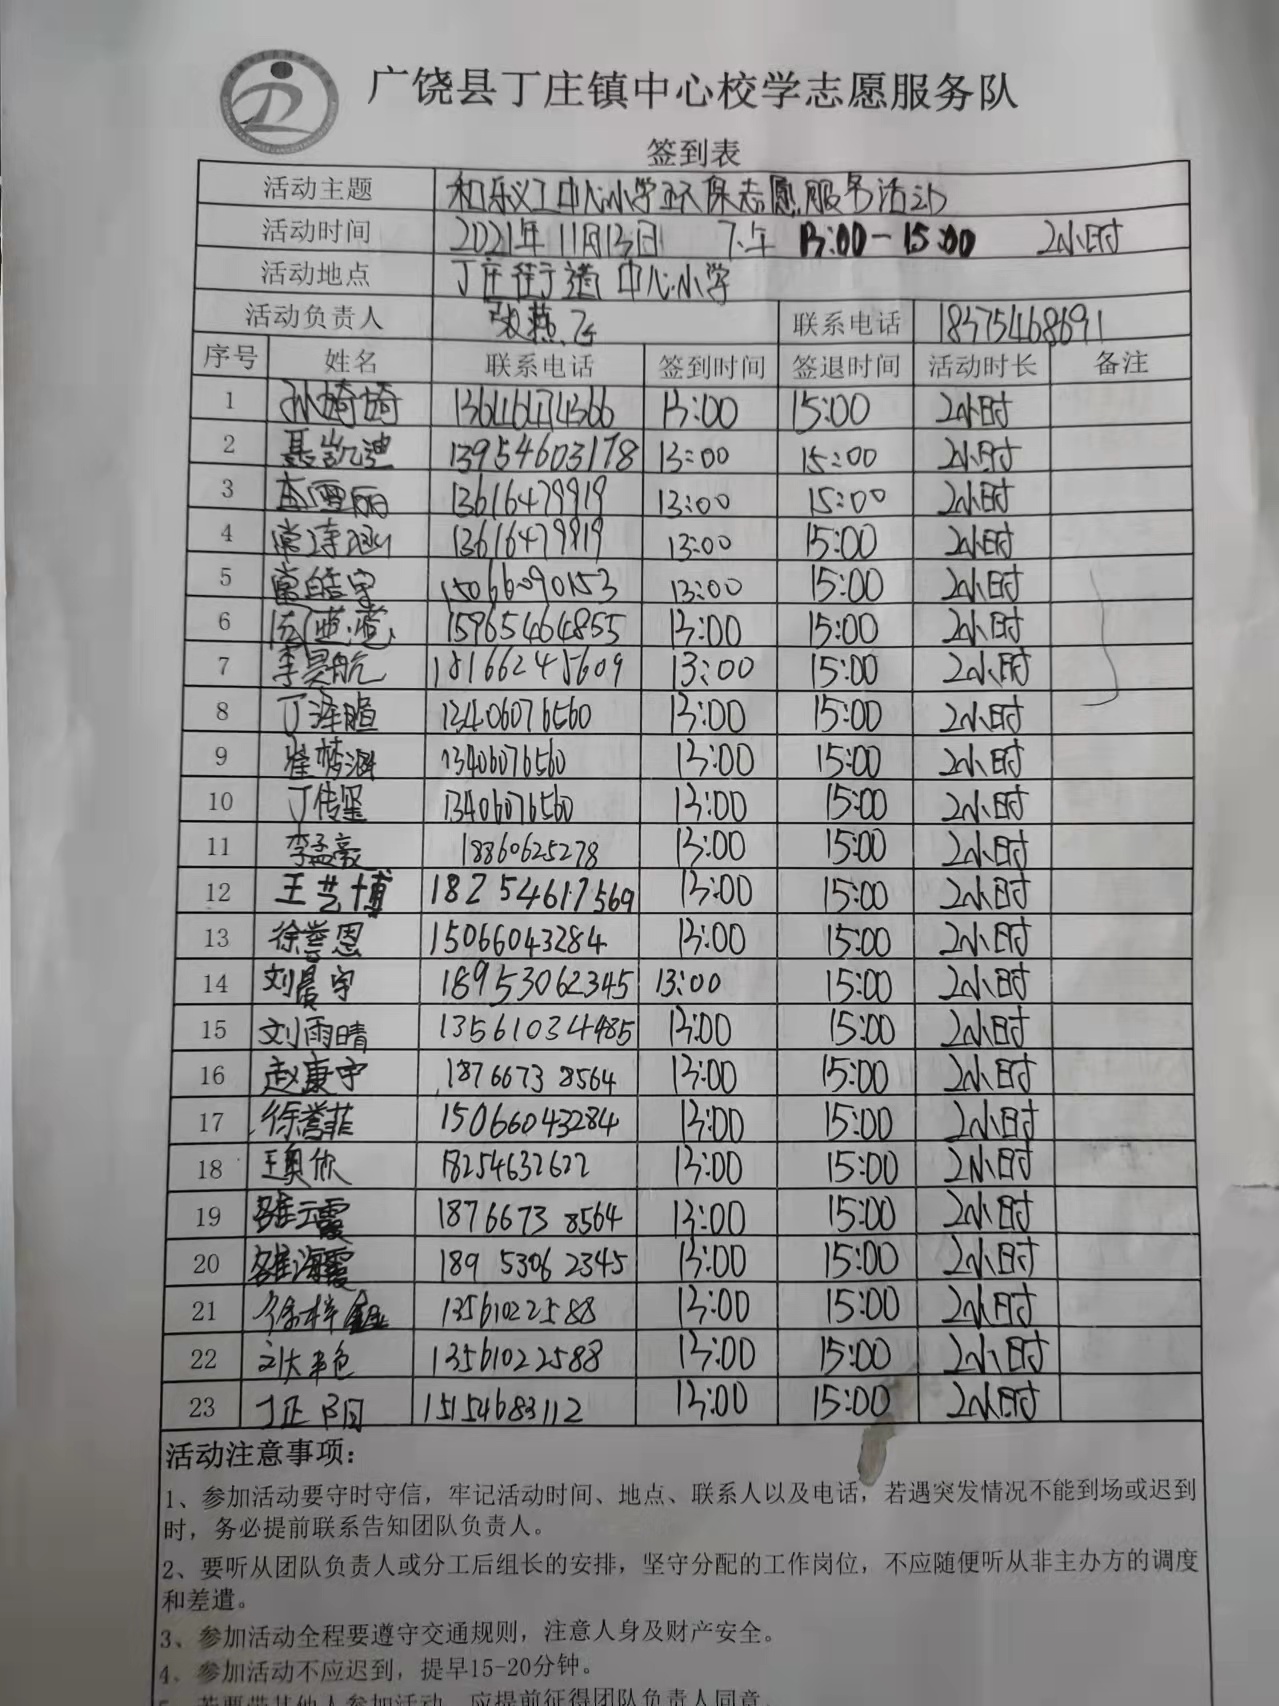 广饶县丁庄镇中心校学志愿服务队
签到表
活动主题 和乐义工中心小学环保志愿服务活动
活动时间 2021年11月13日 下午 13:00-15:00 2小时
活动地点 丁庄街道中心小学
活动负责人 张燕飞 联系电话 18375468691
序号 姓名 联系电话 签到时间 签退时间 活动时长 备注
1 孙琦琦 13646474366 13:00 15:00 2小时
2 聂凯迪 13954603178 13:00 15:00 2小时
3 李雪丽 13616479919 13:00 15:00 2小时
4 常诗涵 13616479919 13:00 15:00 2小时
5 常皓宇 15066090153 13:00 15:00 2小时
6 15965464855 13:00 15:00 2小时
7 李昊航 18166245609 13:00 15:00 2小时
8 丁泽暄 13406076560 13:00 15:00 2小时
9 崔梦涵 13406076560 13:00 15:00 2小时
10 丁传玺 13406076560 13:00 15:00 2小时
11 李孟豪 18860625278 13:00 15:00 2小时
12 王艺博 18254617569 13:00 15:00 2小时
13 徐誉恩 15066043284 13:00 15:00 2小时
14 刘晨宇 18953062345 13:00 15:00 2小时
15 刘雨晴 13561034485 13:00 15:00 2小时
16 赵康宇 18766738564 13:00 15:00 2小时
17 徐誉菲 15066043284 13:00 15:00 2小时
18 王奥欣 18254632622 13:00 15:00 2小时
19 雒云霞 18766738564 13:00 15:00 2小时
20 雒海霞 18953062345 13:00 15:00 2小时
21 徐梓鑫 13561022588 13:00 15:00 2小时
22 13561022588 13:00 15:00 2小时
23 丁正阳 15154683112 13:00 15:00 2小时
活动注意事项：
1、参加活动要守时守信，牢记活动时间、地点、联系人以及电话，若遇突发情况不能到场或迟到
时，务必提前联系告知团队负责人。
2、要听从团队负责人或分工后组长的安排，坚守分配的工作岗位，不应随便听从非主办方的调度
和差遣。
3、参加活动全程要遵守交通规则，注意人身及财产安全。
4、参加活动不应迟到，提早15-20分钟。
5、若要带其他人参加活动，应提前征得团队负责人同意。